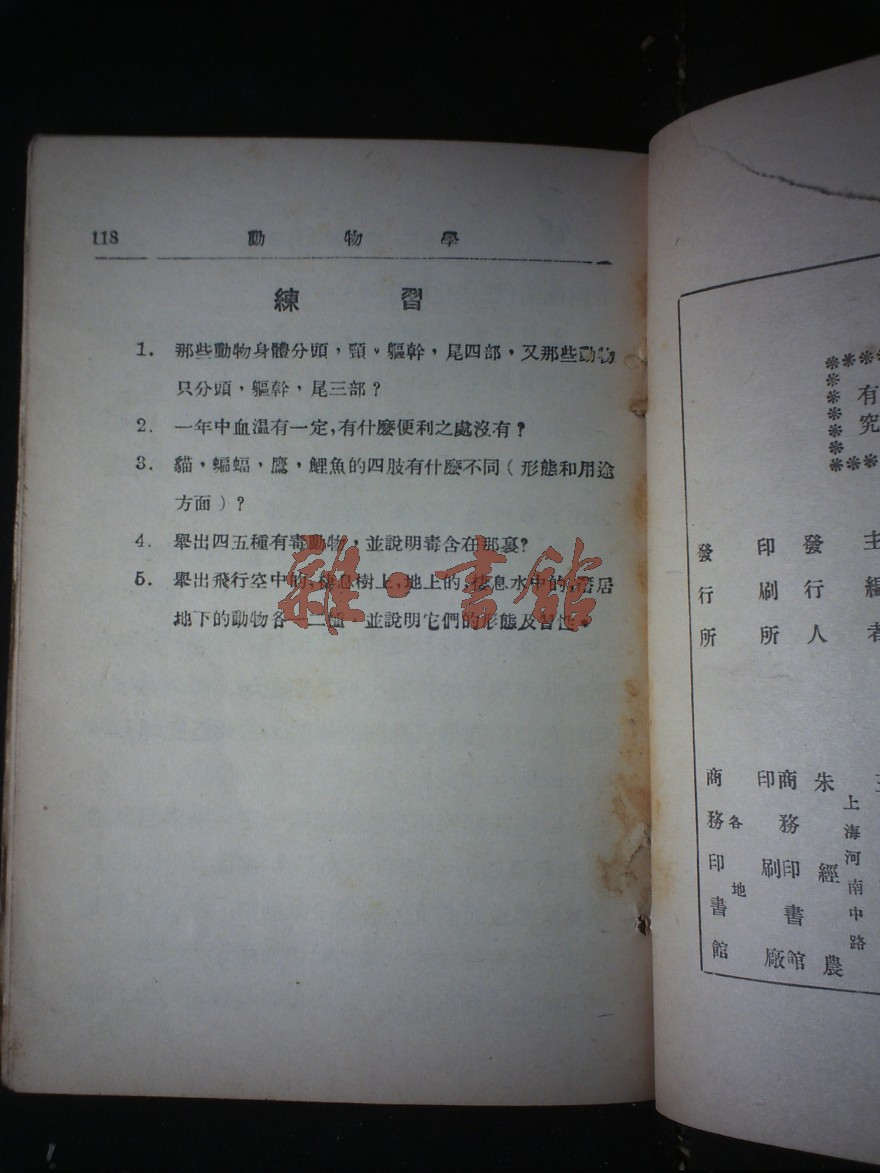 118 動物學
練習
1. 那些動物身體分頭，頸。軀幹，尾四部，又那些動物
只分頭，軀幹，尾三部？
2. 一年中血温有一定，有什麼便利之處沒有？
3. 貓，蝙蝠，鷹，鯉魚的四肢有什麼不同（形態和用途
方面）？
4. 舉出四五種有毒動物，並說明毒含在那裏？
5. 舉出飛行空中的，棲息樹上，地上的，棲息水中的，潛居
地下的動物各一二種，並說明它們的形態及習性。
雜·書館
有
究
主編者
發行人 朱經農
上海河南中路
印刷所 商務印書館
印刷廠
發行所 商務印書館
各地